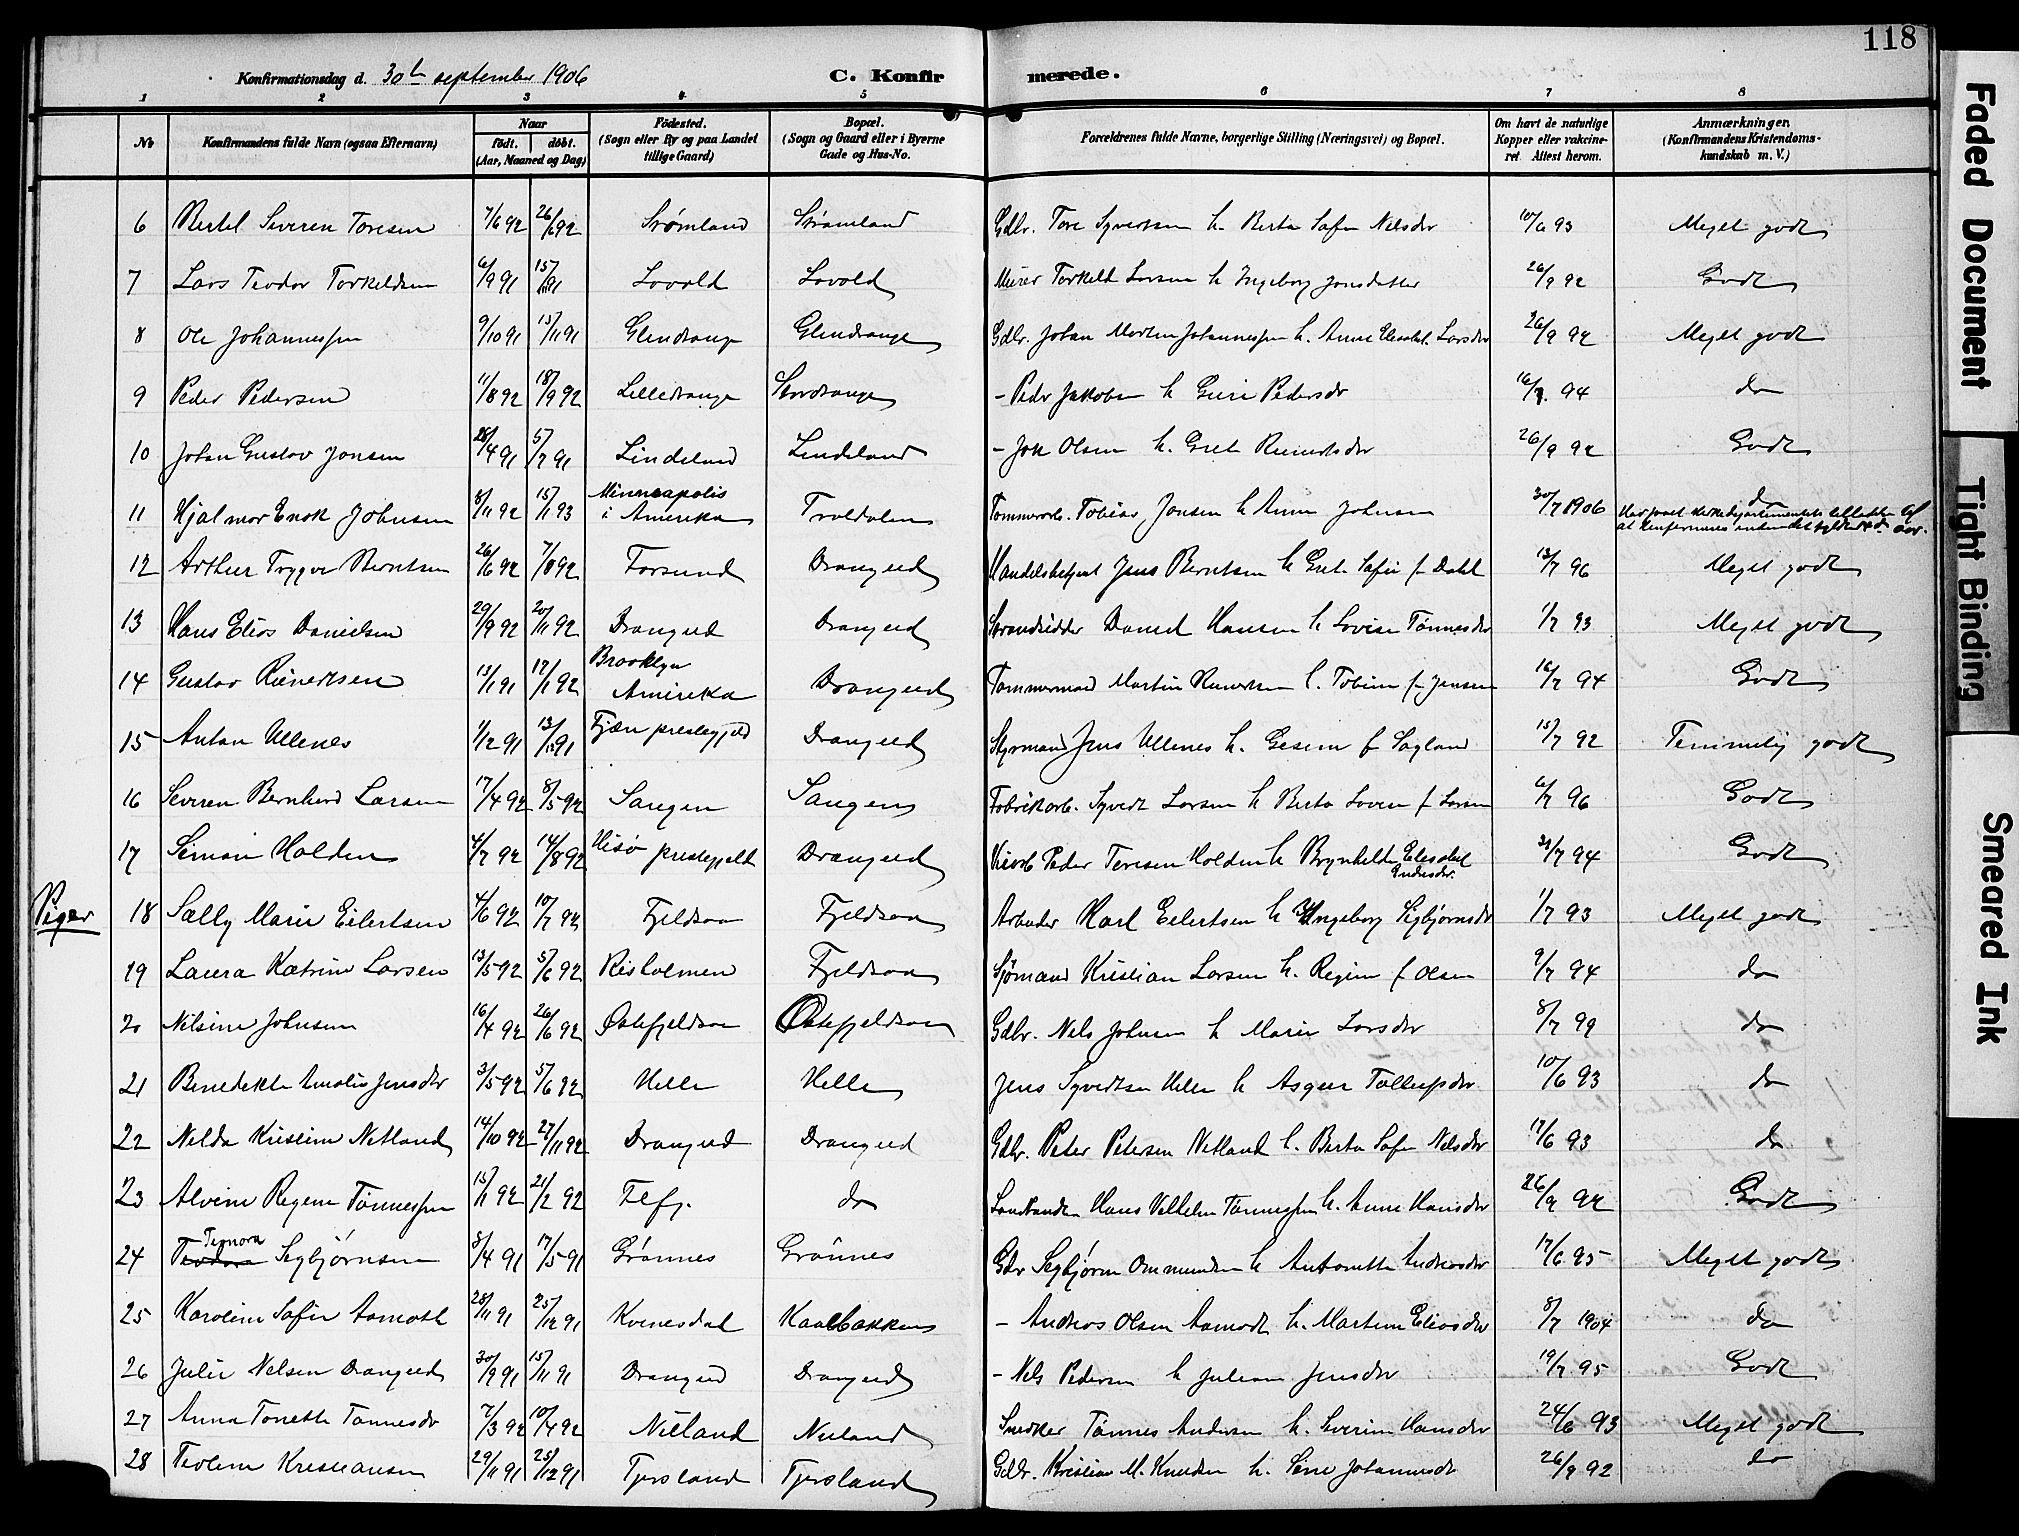 118
Konfirmationsdag d. 30te september 1906 C. Konfir merede.
1 2 3 4 5 6 7 8
No Konfirmandens fulde Navn (ogsaa Efternavn) Naar født. døbt. (Aar, Maaned og Dag) Fødested. (Sogn eller By og paa Landet tillige Gaard) Bopæl. (Sogn og Gaard eller i Byerne Gade og Hus-No. Forældrenes fulde Navne, borgerlige Stilling (Næringsvei) og Bopæl. Om havt de naturlige Kopper eller vakcineret. Attest herom. Anmærkninger. (Konfirmandens Kristendomskundskab m. V.)
6 Bertel Severin Toresen 7/6 92 26/6 92 Strømland Strømland Gdbr. Tore Syvertsen h. Berta Sofie Nilsdtr 10/6 93 Meget godt
7 Lars Teodor Torkeldsen 6/9 91 15/11 91 Lovold Lovold Murer Torkeld Larsen h. Ingeborg Jonsdatter 26/9 92 Godt
8 Ole Johannessen 9/10 91 15/11 91 Glendrange Glendrange Gdbr. Johan Martin Johannessen h. Anne Elisabet Larsdtr 26/9 92 Meget godt
9 Peder Pedersen 11/8 92 18/9 92 Lilledrange Stordrange - Peder Jakobsen h. Guri Pedersdr 16/7. 94 do
10 Johan Gustav Jonsen 28/4 91 5/7 91 Lindeland Lindeland - Jon Olsen h. Grete Reinertsdr 26/9 92 Godt
11 Hjalmar Enok Johnsen 8/11 92 15/1 93 Minneapolis i Amerika Traldalen Tømmerarb. Tobias Jonsen h. Anne Johnsen 30/7 1906 do
12 Arthur Trygve Berntsen 26/6 92 7/8 92 Farsund Drangeid Handelsbetjent Jens Berntsen h. Grete Sofie f. Dahl 13/7 96 Meget godt
13 Hans Elias Danielsen 29/9 92 20/11 92 Drangeid Drangeid Strandsidder Daniel Hansen h. Lovise Tønnesdtr 1/7 93 Meget godt
14 Gustav Reinertsen 13/1 91 17/1 92 Brooklyn Amerika Drangeid Tømmermand Martin Reinertsen h. Tobine f. Jensen 16/7 94 Godt
15 Anton Ullenes 1/12 91 13/12 91 Fjære prestegjeld Drangeid Styrmand Jens Ullenes h. Gesine f. Sagland 15/7 92 Temmelig godt
16 Severin Bernhard Larsen 17/4 92 8/5 92 Sangen Sangen Fabrikarb. Syvert Larsen h. Berta Lovise f. Larsen 6/7 96 Godt
17 Simon Holden 4/7 92 14/8 92 Hisø prestegjeld Drangeid Peder Teresen Holden h. Brynhilde Elisabet 94 Godt
Piger 18 Sally Marie Eilertsen 4/6 92 10/7 92 Fjeldsaa Fjeldsaa Arbeider Karl Eilertsen h. Ingeborg Sigbjørnsdr 1/7 93 Meget godt
19 Laura Katrine Larsen 13/5 92 5/6 92 Risholmen Fjeldsaa Sjømand Kristian Larsen h. Regine f. Olsen 9/7 94 do
20 Nilsine Johnsen 16/4 92 26/6 92 Østefjeldsaa Østefjeldsaa Gdbr. Nels Johnsen h. Marie Larsdtr 8/7 99 do
21 Benedikte Amalie Jensdtr 3/5 92 5/6 92 Helle Helle Jens Syvertsen Helle h. Asgier Tollefsdtr 10/6 93 do
22 Nelda Kristine Netland 14/10 92 27/11 92 Drangeid Drangeid Gdbr. Peter Petersen Netland h. Berta Sofie Nilsdtr 17/6 93 do
23 Alvine Regine Tønnessen 15/1 92 21/2 92 Flefj. do Hans Vilhelm Tønnessen h. Anne Hansdtr 26/9 92 Godt
24 Teodora Teonora Sigbjørnsen 8/4 91 17/5 91 Grønnes Grønnes Gdr Sigbjørn Ommundsen h. Antonette Andreasdtr 17/6 95 Meget godt
25 Karoline Sofie Aamodt 28/11 91 25/12 91 Kvinesdal Kaalbakken - Andreas Olsen Aamodt h. Martine Eliasdtr 8/7 1904 do
26 Julie Nelsen Drangeid 30/9 91 15/11 91 Drangeid Drangeid - Nels Pedersen h. Juliane Jensdtr 19/7 95 Godt
27 Anna Tonette Tønnesdr 7/3 92 10/4 92 Nuland Nuland Snedker Tønnes Andersen h. Severine Hansdtr 24/6 93 Meget godt
28 Teoline Kristiansen 29/11 91 25/12 91 Tjersland Tjersland Gdbr. Kristian M. Knudsen h. Sine Johannesdtr 26/9 92 do
Faded Document
Tight Binding
Smeared Ink